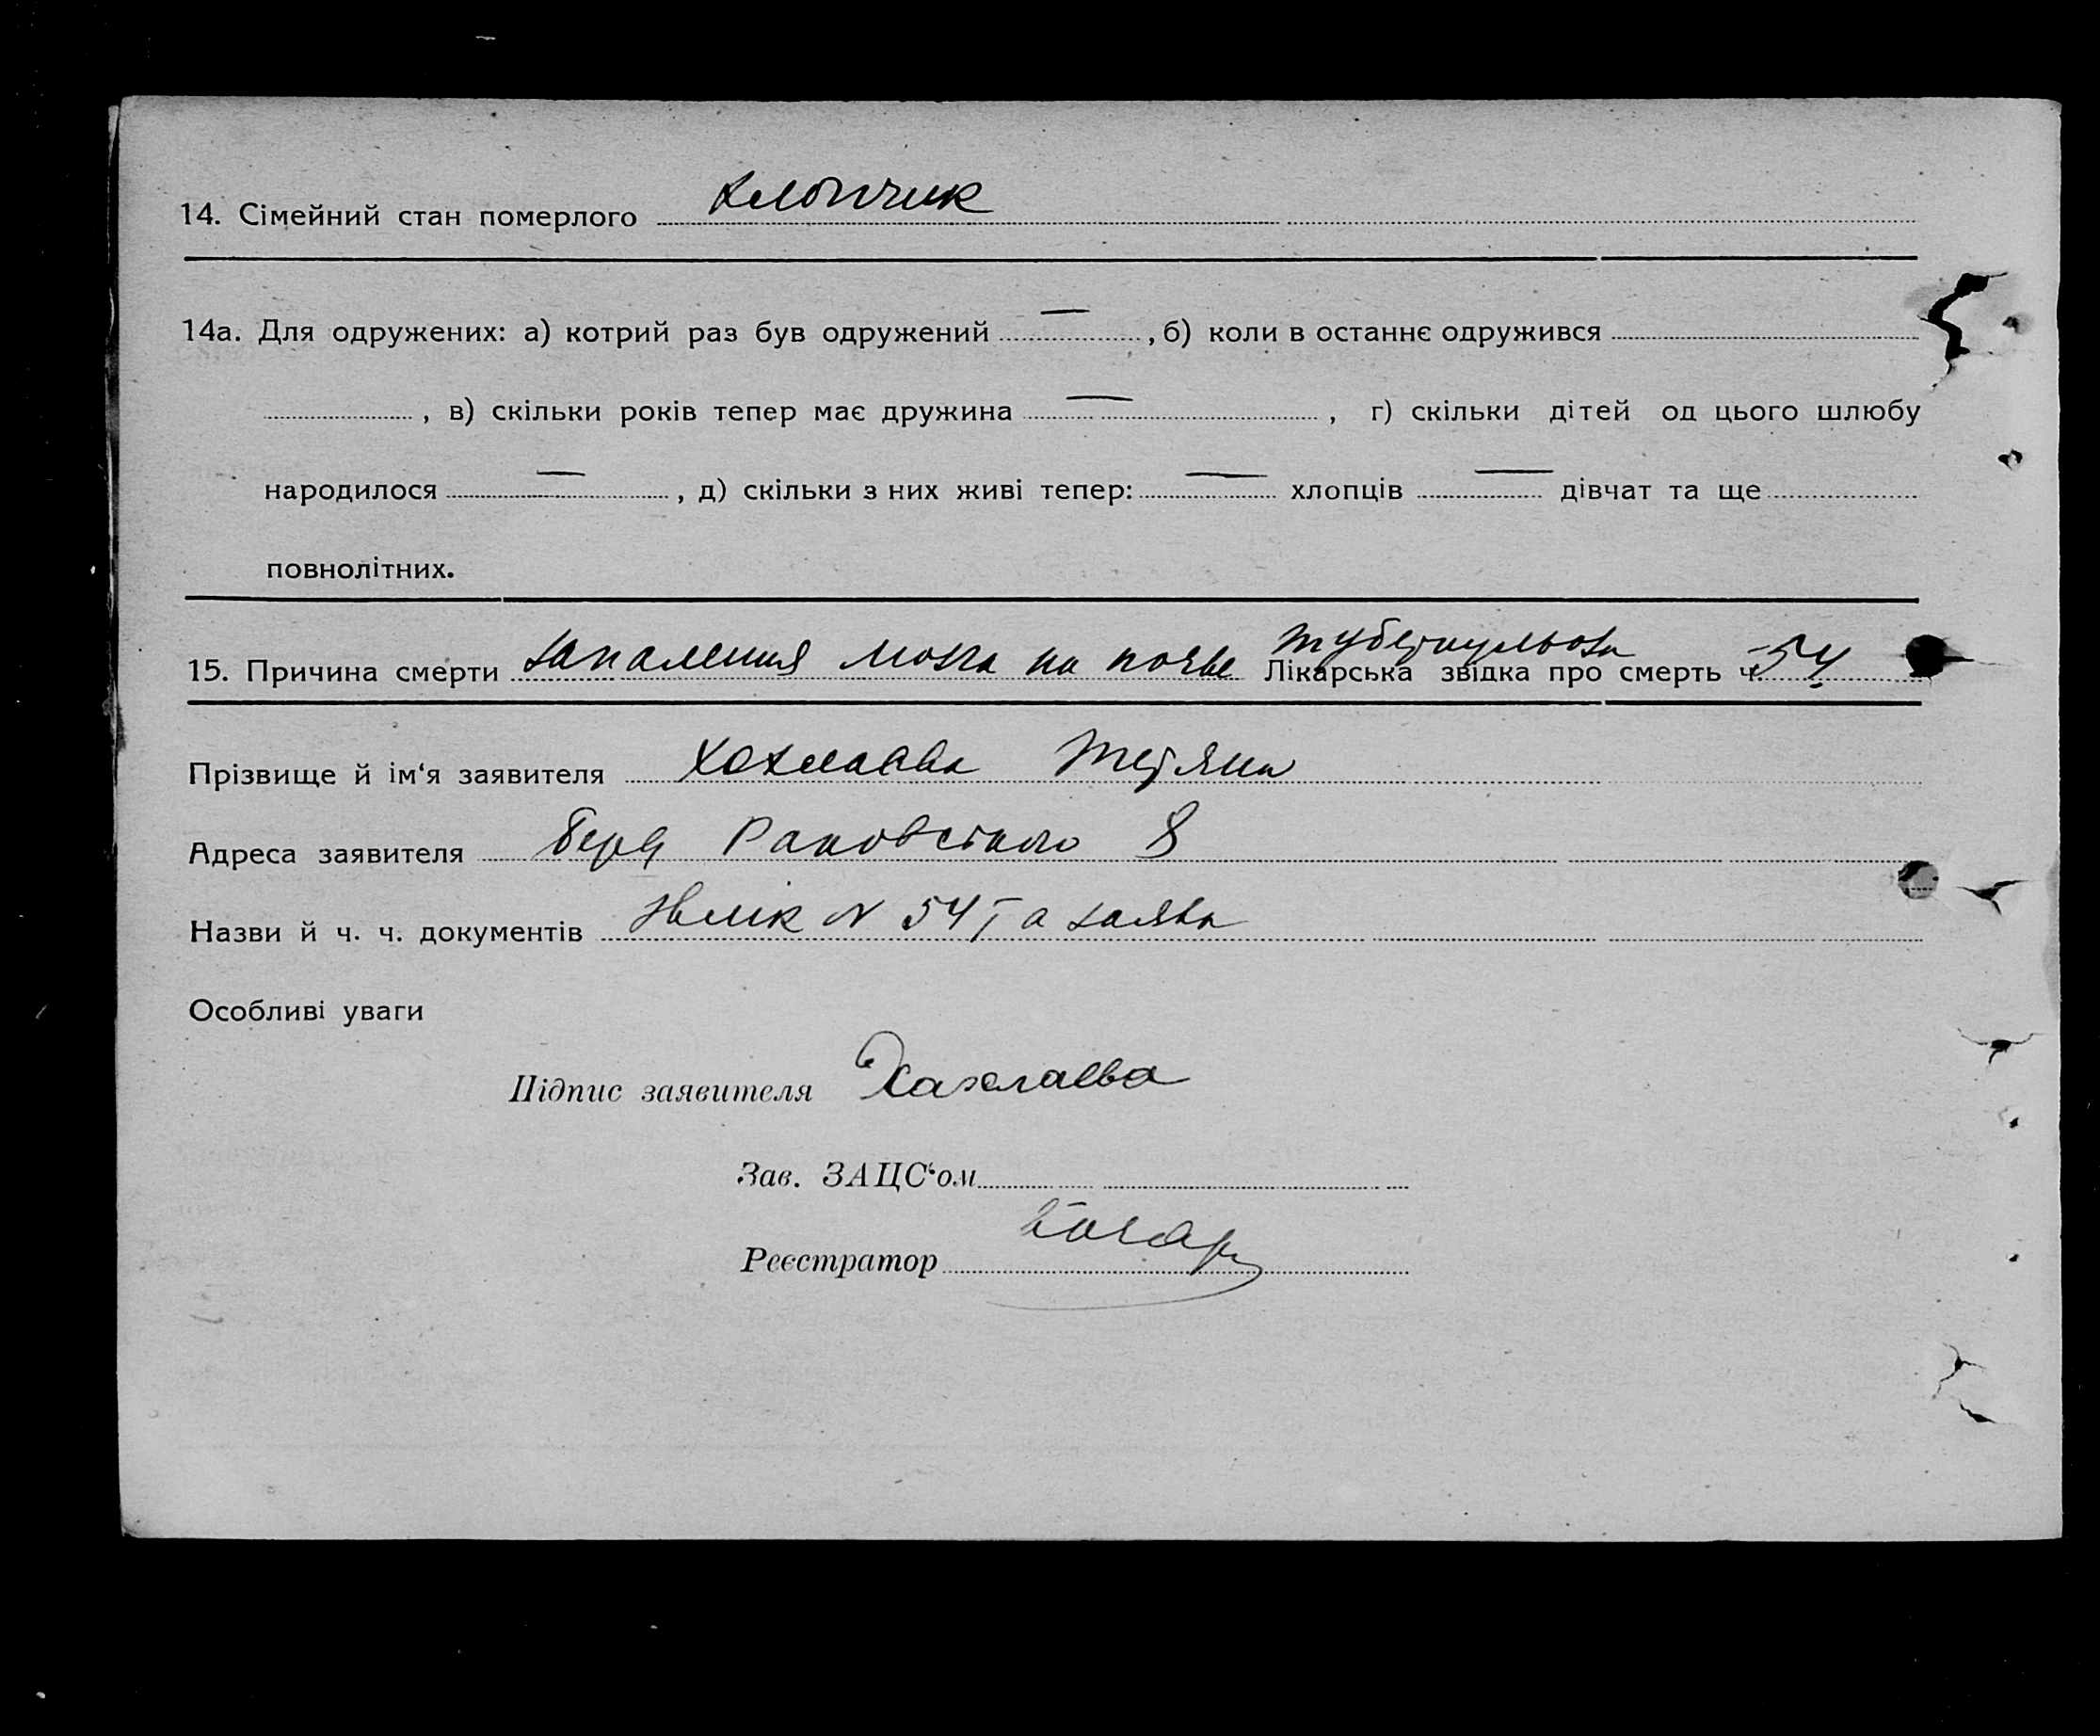 14. Сімейний стан померлого хлопчик
14а. Для одружених: а) котрий раз був одружений — , б) коли в останнє одружився
, в) скільки років тепер має дружина — , г) скільки дітей од цього шлюбу
народилося — , д) скільки з них живі тепер: — хлопців — дівчат та ще
повнолітних.
15. Причина смерти запалення мозга на почве туберкульоза Лікарська звідка про смерть ч. 54
Прізвище й ім‘я заявителя Хохлаєва Тетяна
Адреса заявителя Раковського 8
Назви й ч. ч. документів N 54 та заява
Особливі уваги
Підпис заявителя Хахлаева
Зав. ЗАЦС‘ом
Реєстратор